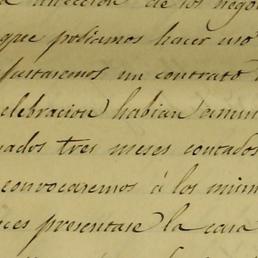 dirección de los nego
que podamos hacer uso
justaremos un contrato
celebracion habian
nados tres meses contados
convocaremos á los mism
ces presentase la casa